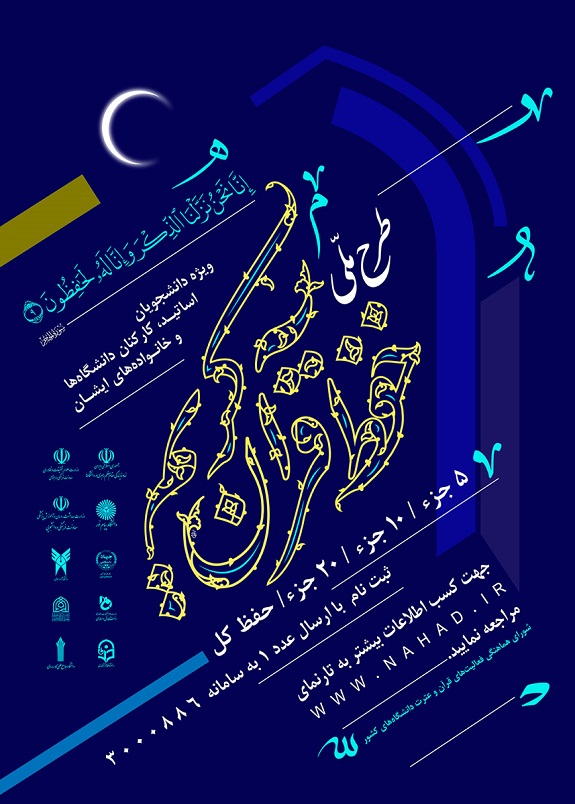 إِنَّا نَحْنُ نَزَّلْنَا الذِّكْرَ وَإِنَّا لَهُ لَحَافِظُونَ ۹
طرح ملّی
حفظ قرآن کریم
ویژه دانشجویان
اساتید، کارکنان دانشگاه‌ها
و خانواده‌های ایشان
۵ جزء / ۱۰ جزء / ۲۰ جزء / حفظ کل
ثبت نام با ارسال عدد ۱ به سامانه ۳۰۰۰۸۸۶
جهت کسب اطلاعات بیشتر به تارنمای
WWW.NAHAD.IR
مراجعه نمایید.
شورای هماهنگی فعالیت‌های قرآن و عترت دانشگاه‌های کشور